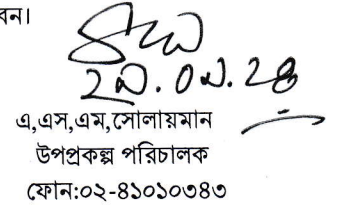 বন।
এ,এস,এম,সোলায়মান
উপপ্রকল্প পরিচালক
ফোন:০২-৪১০১০৩৪৩